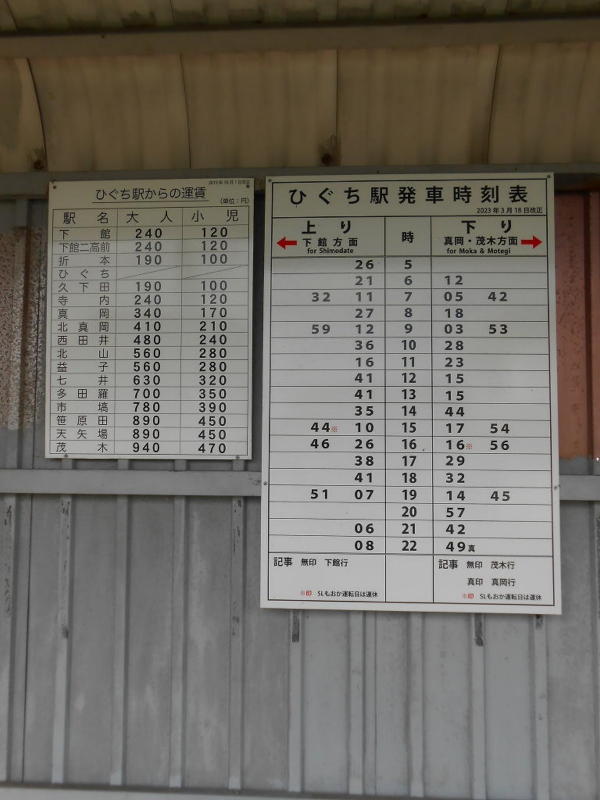 2019年10月1日改正
ひぐち駅からの運賃
(単位:円)
駅名 大人 小児
下館 240 120
下館二高前 240 120
折本 190 100
ひぐち
久下田 190 100
寺内 240 120
真岡 340 170
北真岡 410 210
西田井 480 240
北山 560 280
益子 560 280
七井 630 320
多田羅 700 350
市塙 780 390
笹原田 890 450
天矢場 890 450
茂木 940 470
ひぐち駅発車時刻表
2023年3月18日改正
上り 時 下り
下館方面 真岡・茂木方面
for Shimodate for Moka & Motegi
26 5
21 6 12
32 11 7 05 42
27 8 18
59 12 9 03 53
36 10 28
16 11 23
41 12 15
41 13 15
35 14 44
44※ 10 15 17 54
46 26 16 16※ 56
38 17 29
41 18 32
51 07 19 14 45
20 57
06 21 42
08 22 49真
記事 無印 下館行 記事 無印 茂木行
真印 真岡行
※印 SLもおか運転日は運休 ※印 SLもおか運転日は運休